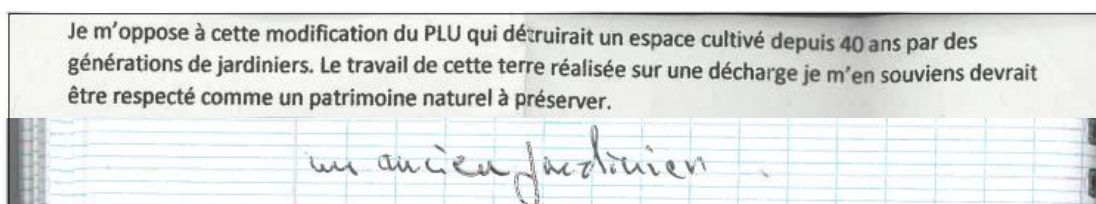 Je m'oppose à cette modification du PLU qui détruirait un espace cultivé depuis 40 ans par des
générations de jardiniers. Le travail de cette terre réalisée sur une décharge je m'en souviens devrait
être respecté comme un patrimoine naturel à préserver.
un ancien jardinier.